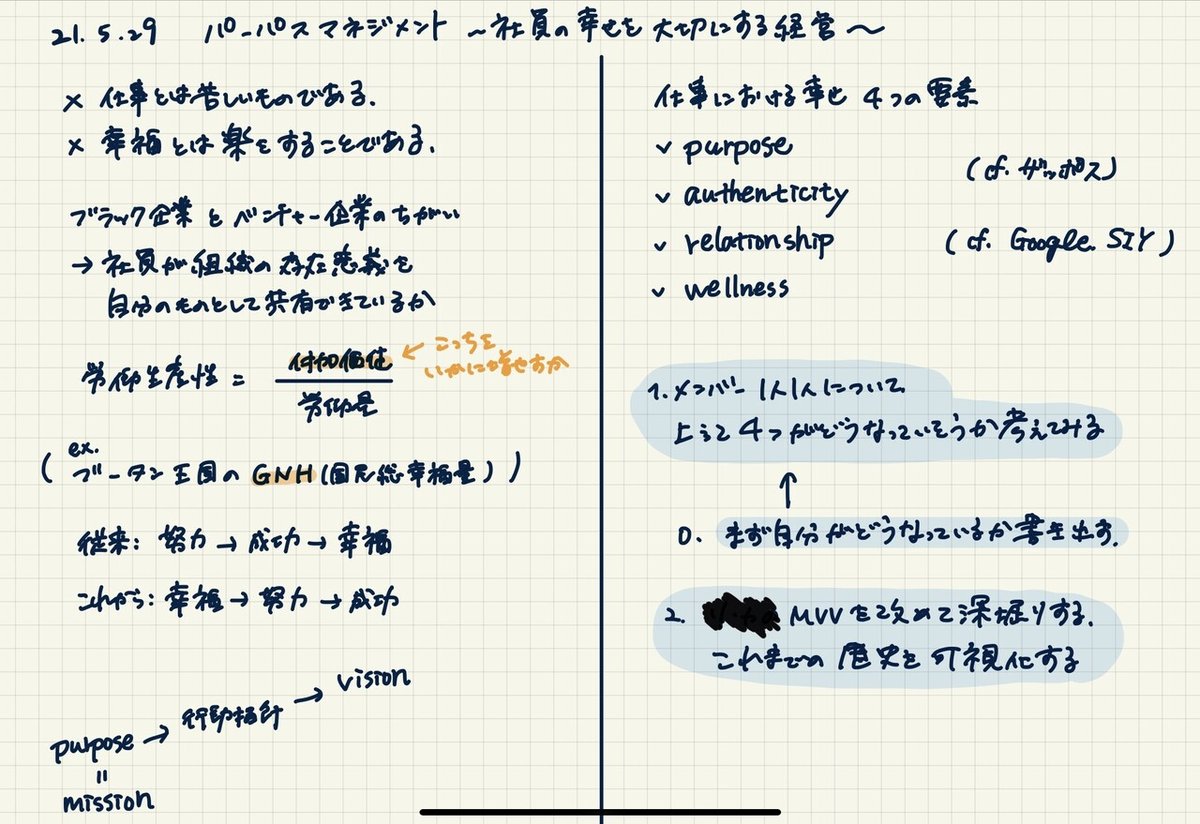 21.5.29 パーパスマネジメント 〜社員の幸せを大切にする経営〜
× 仕事とは苦しいものである.
× 幸福とは楽をすることである.
ブラック企業とベンチャー企業のちがい
→ 社員が組織の存在意義を
自分のものとして共有できているか
労働生産性 = 付加価値 / 労働量
← こっちを
いかに増やすか
ex.
( ブータン王国の GNH (国民総幸福量) )
従来: 努力 → 成功 → 幸福
これから: 幸福 → 努力 → 成功
purpose → 行動指針 → vision
=
mission
仕事における幸せ 4つの要素
✓ purpose
✓ authenticity (cf. ザッポス)
✓ relationship (cf. Google SIY)
✓ wellness
1. メンバー 1人1人について
上記4つがどうなっていそうか考えてみる
↑
0. まず自分がどうなっているか書き出す.
2. MVVを改めて深堀りする.
これまでの歴史を可視化する